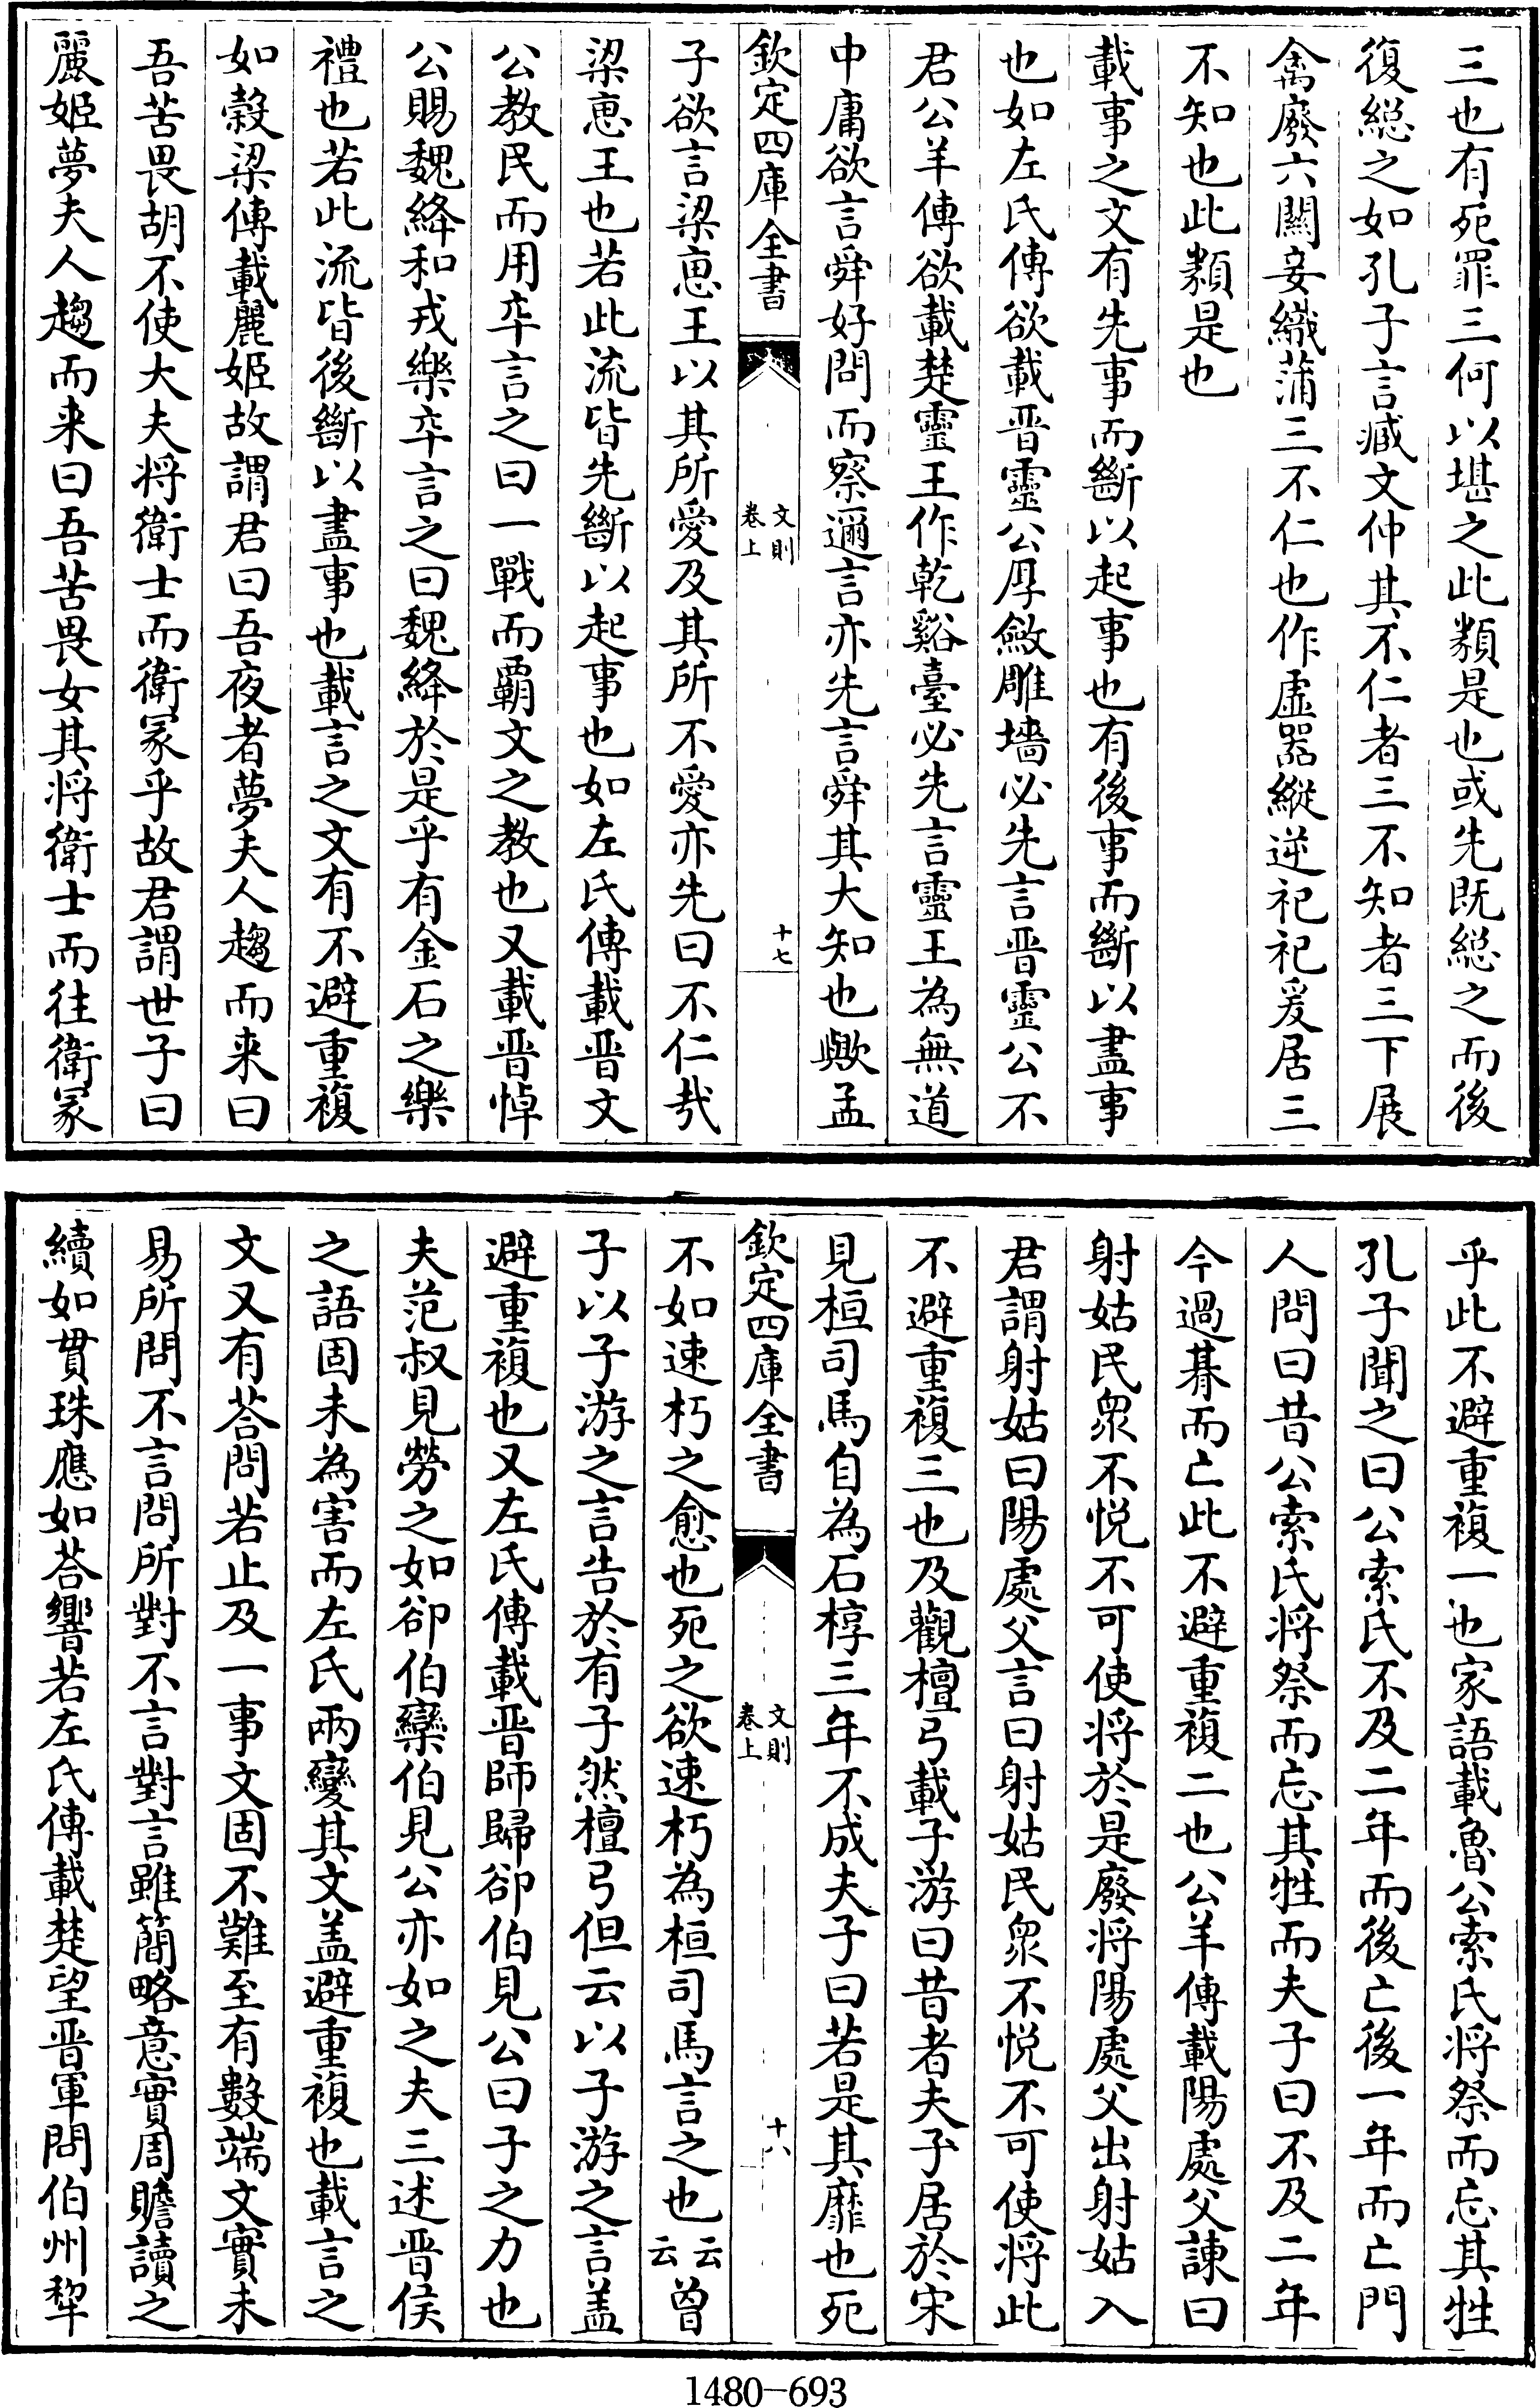 三也有死罪三何以堪之此類是也或先既總之而後
復總之如孔子言臧文仲其不仁者三不知者三下展
禽廢六關妾織蒲三不仁也作虛器縱逆祀祀爰居三
不知也此類是也
載事之文有先事而斷以起事也有後事而斷以盡事
也如左氏傳欲載晉靈公厚斂雕墻必先言晉靈公不
君公羊傳欲載楚靈王作乾谿臺必先言靈王為無道
中庸欲言舜好問而察邇言亦先言舜其大知也歟孟
欽定四庫全書
文則
卷上
十七
子欲言梁惠王以其所愛及其所不愛亦先曰不仁哉
梁惠王也若此流皆先斷以起事也如左氏傳載晉文
公教民而用卒言之曰一戰而覇文之教也又載晉悼
公賜魏絳和戎樂卒言之曰魏絳於是乎有金石之樂
禮也若此流皆後斷以盡事也載言之文有不避重複
如榖梁傳載麗姬故謂君曰吾夜者夢夫人趨而来曰
吾苦畏胡不使大夫将衛士而衛冢乎故君謂世子曰
麗姬夢夫人趨而来曰吾苦畏女其将衛士而往衛冢
乎此不避重複一也家語載魯公索氏将祭而忘其牲
孔子聞之曰公索氏不及二年而後亡後一年而亡門
人問曰昔公索氏将祭而忘其牲而夫子曰不及二年
今過朞而亡此不避重複二也公羊傳載陽處父諫曰
射姑民衆不悦不可使将於是廢将陽處父出射姑入
君謂射姑曰陽處父言曰射姑民衆不悦不可使将此
不避重複三也及觀檀弓載子游曰昔者夫子居於宋
見桓司馬自為石椁三年不成夫子曰若是其靡也死
欽定四庫全書
文則
卷上
十八
不如速朽之愈也死之欲速朽為桓司馬言之也云云曾
子以子游之言告於有子然檀弓但云以子游之言盖
避重複也又左氏傳載晉師歸卻伯見公曰子之力也
夫范叔見勞之如卻伯欒伯見公亦如之夫三述晉侯
之語固未為害而左氏兩變其文盖避重複也載言之
文又有荅問若止及一事文固不難至有數端文實未
易所問不言問所對不言對言雖簡略意實周贍讀之
續如貫珠應如荅響若左氏傳載楚望晉軍問伯州犂
1480-693